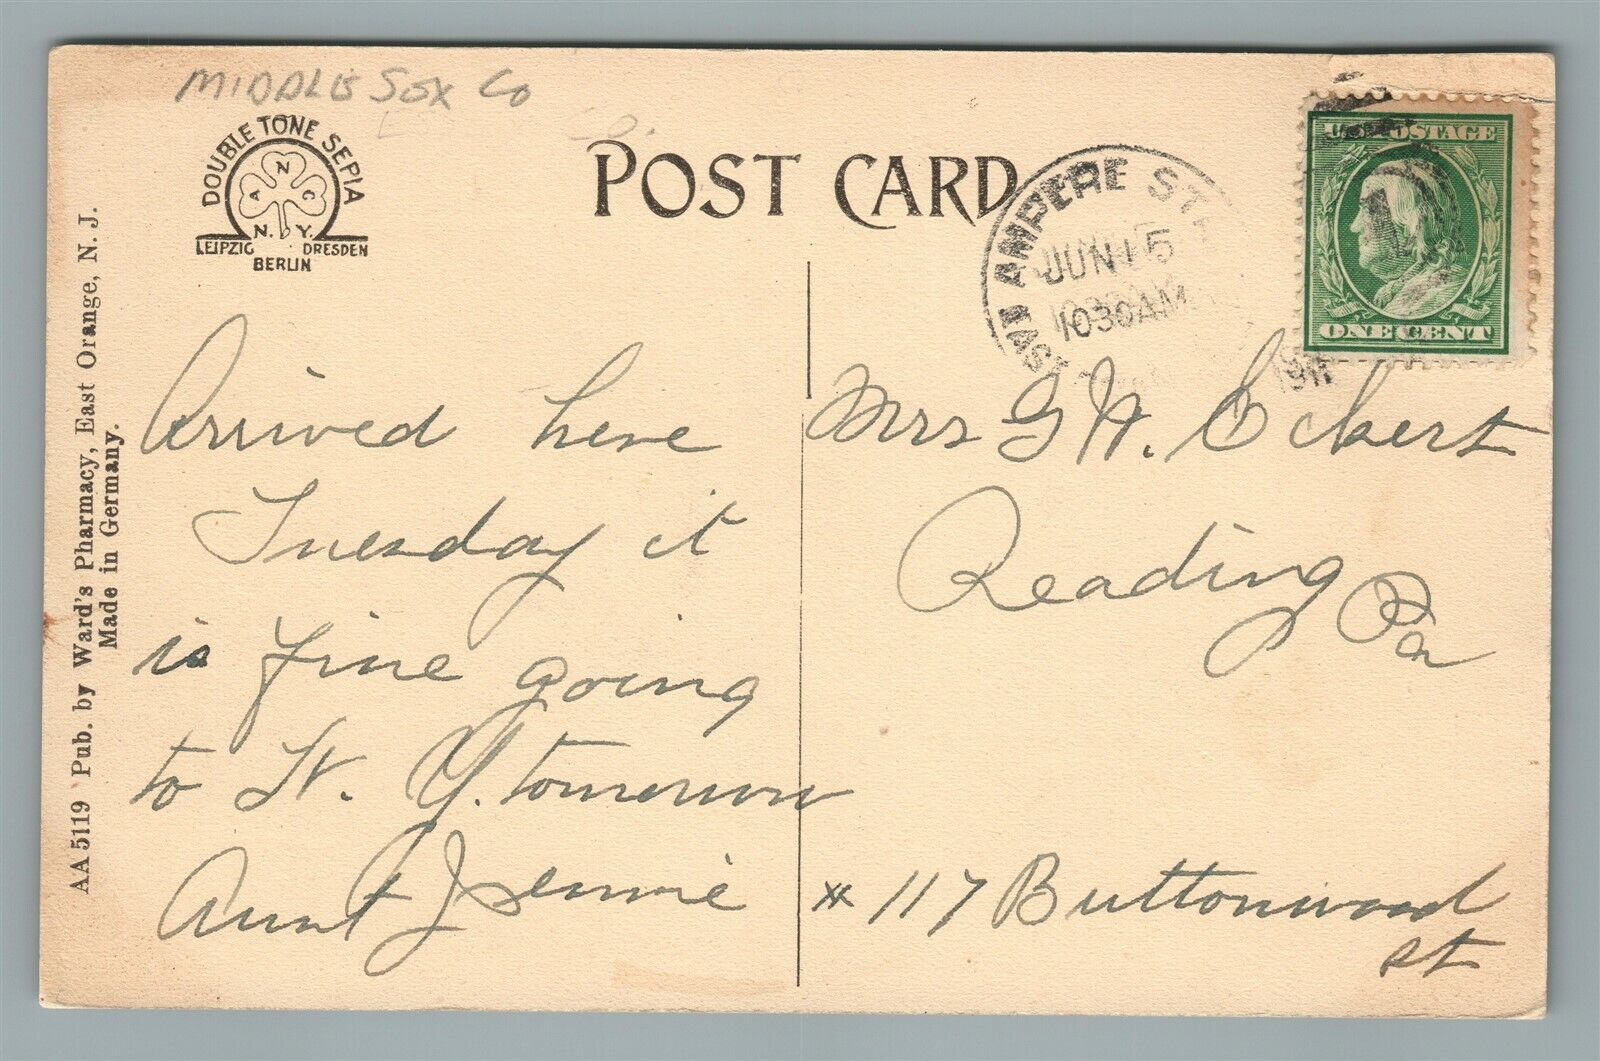 MIDDLE SEX Co
DOUBLE TONE SEPIA
A N C
N. Y.
LEIPZIG DRESDEN
BERLIN
POST CARD
AMPERE STA
JUN 15
1030AM
1911
U.S. POSTAGE
ONE CENT
AA 5119 Pub. by Ward's Pharmacy, East Orange, N. J.
Made in Germany.
Arrived here
Tuesday it
is fine going
to N. Y. tomorrow
Aunt Jennie
Mrs G H. Eckert
Reading Pa
# 117 Buttonwood
st